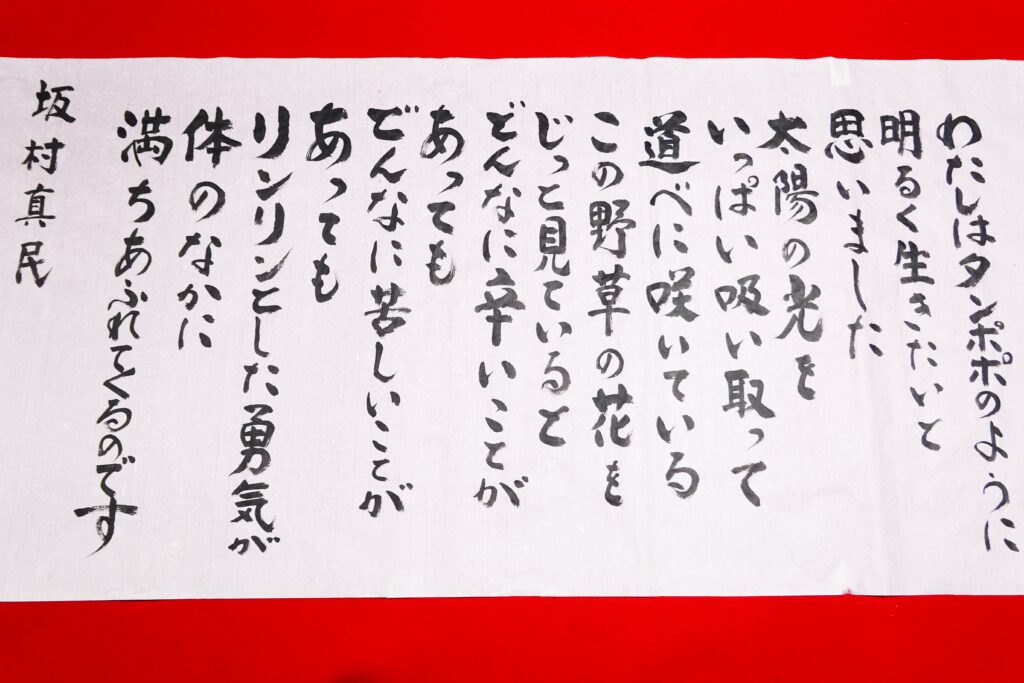 わたしはタンポポのように
明るく生きたいと
思いました
太陽の光を
いっぱい吸い取って
道べに咲いている
この野草の花を
じっと見ていると
どんなに辛いことが
あっても
どんなに苦しいことが
あっても
リンリンとした勇気が
体のなかに
満ちあふれてくるのです
坂村真民